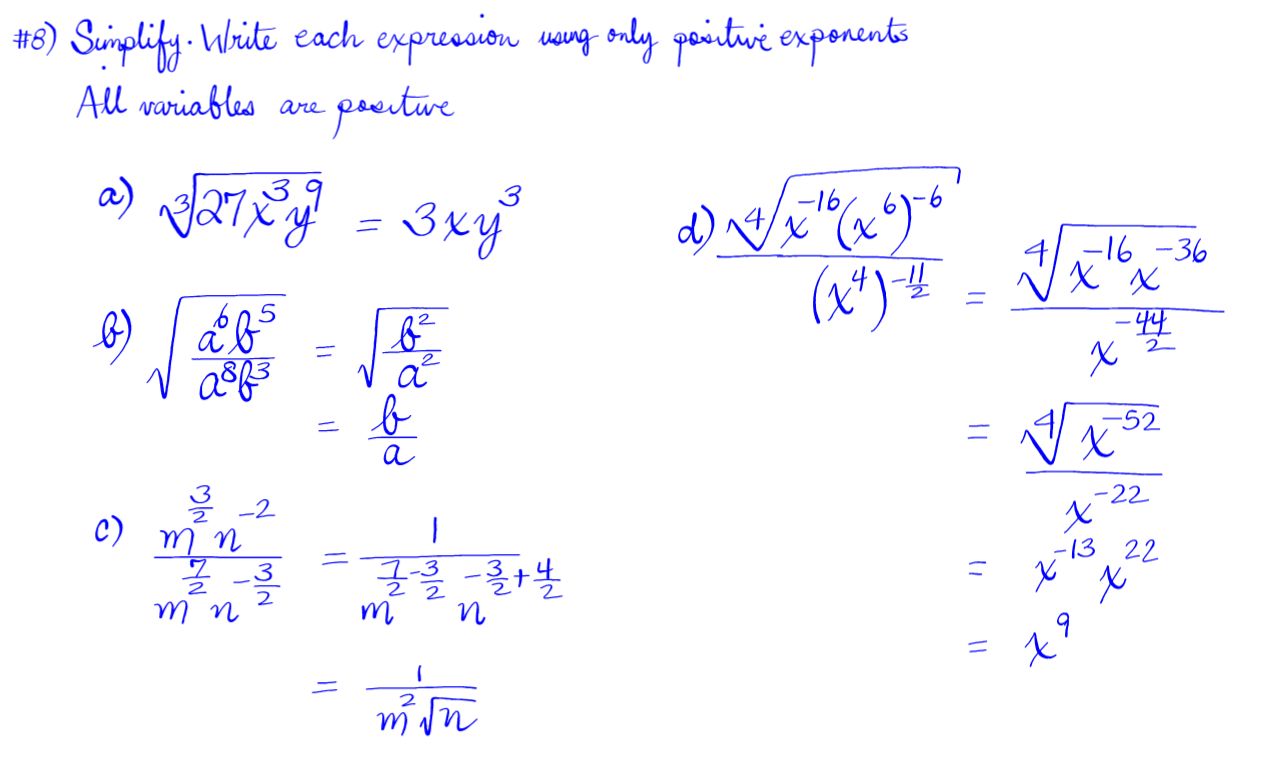 #8) Simplify. Write each expression using only positive exponents
All variables are positive
a) ∛(27x³y⁹) = 3xy³
b) √(a⁶b⁵/a⁸b³) = √(b²/a²)
= b/a
c) m^(3/2) n^(-2) / m^(7/2) n^(-3/2) = 1 / m^(7/2-3/2) n^(-3/2+4/2)
= 1 / m²√n
d) ∜(x^(-16)(x⁶)^(-6)) / (x⁴)^(-11/2) = ∜(x^(-16) x^(-36)) / x^(-44/2)
= ∜(x^(-52)) / x^(-22)
= x^(-13) x^(22)
= x⁹